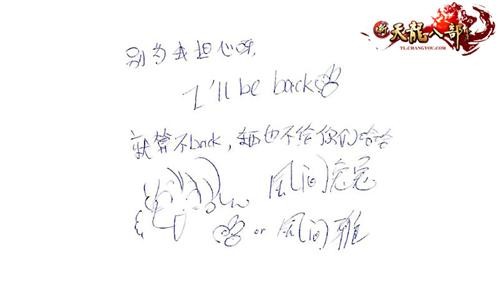 新天龍八部
TL.CHANGYOU.COM
别为我担心呀,
I'll be back
就算不back,也不给你们哈哈
風间
or 風间雅